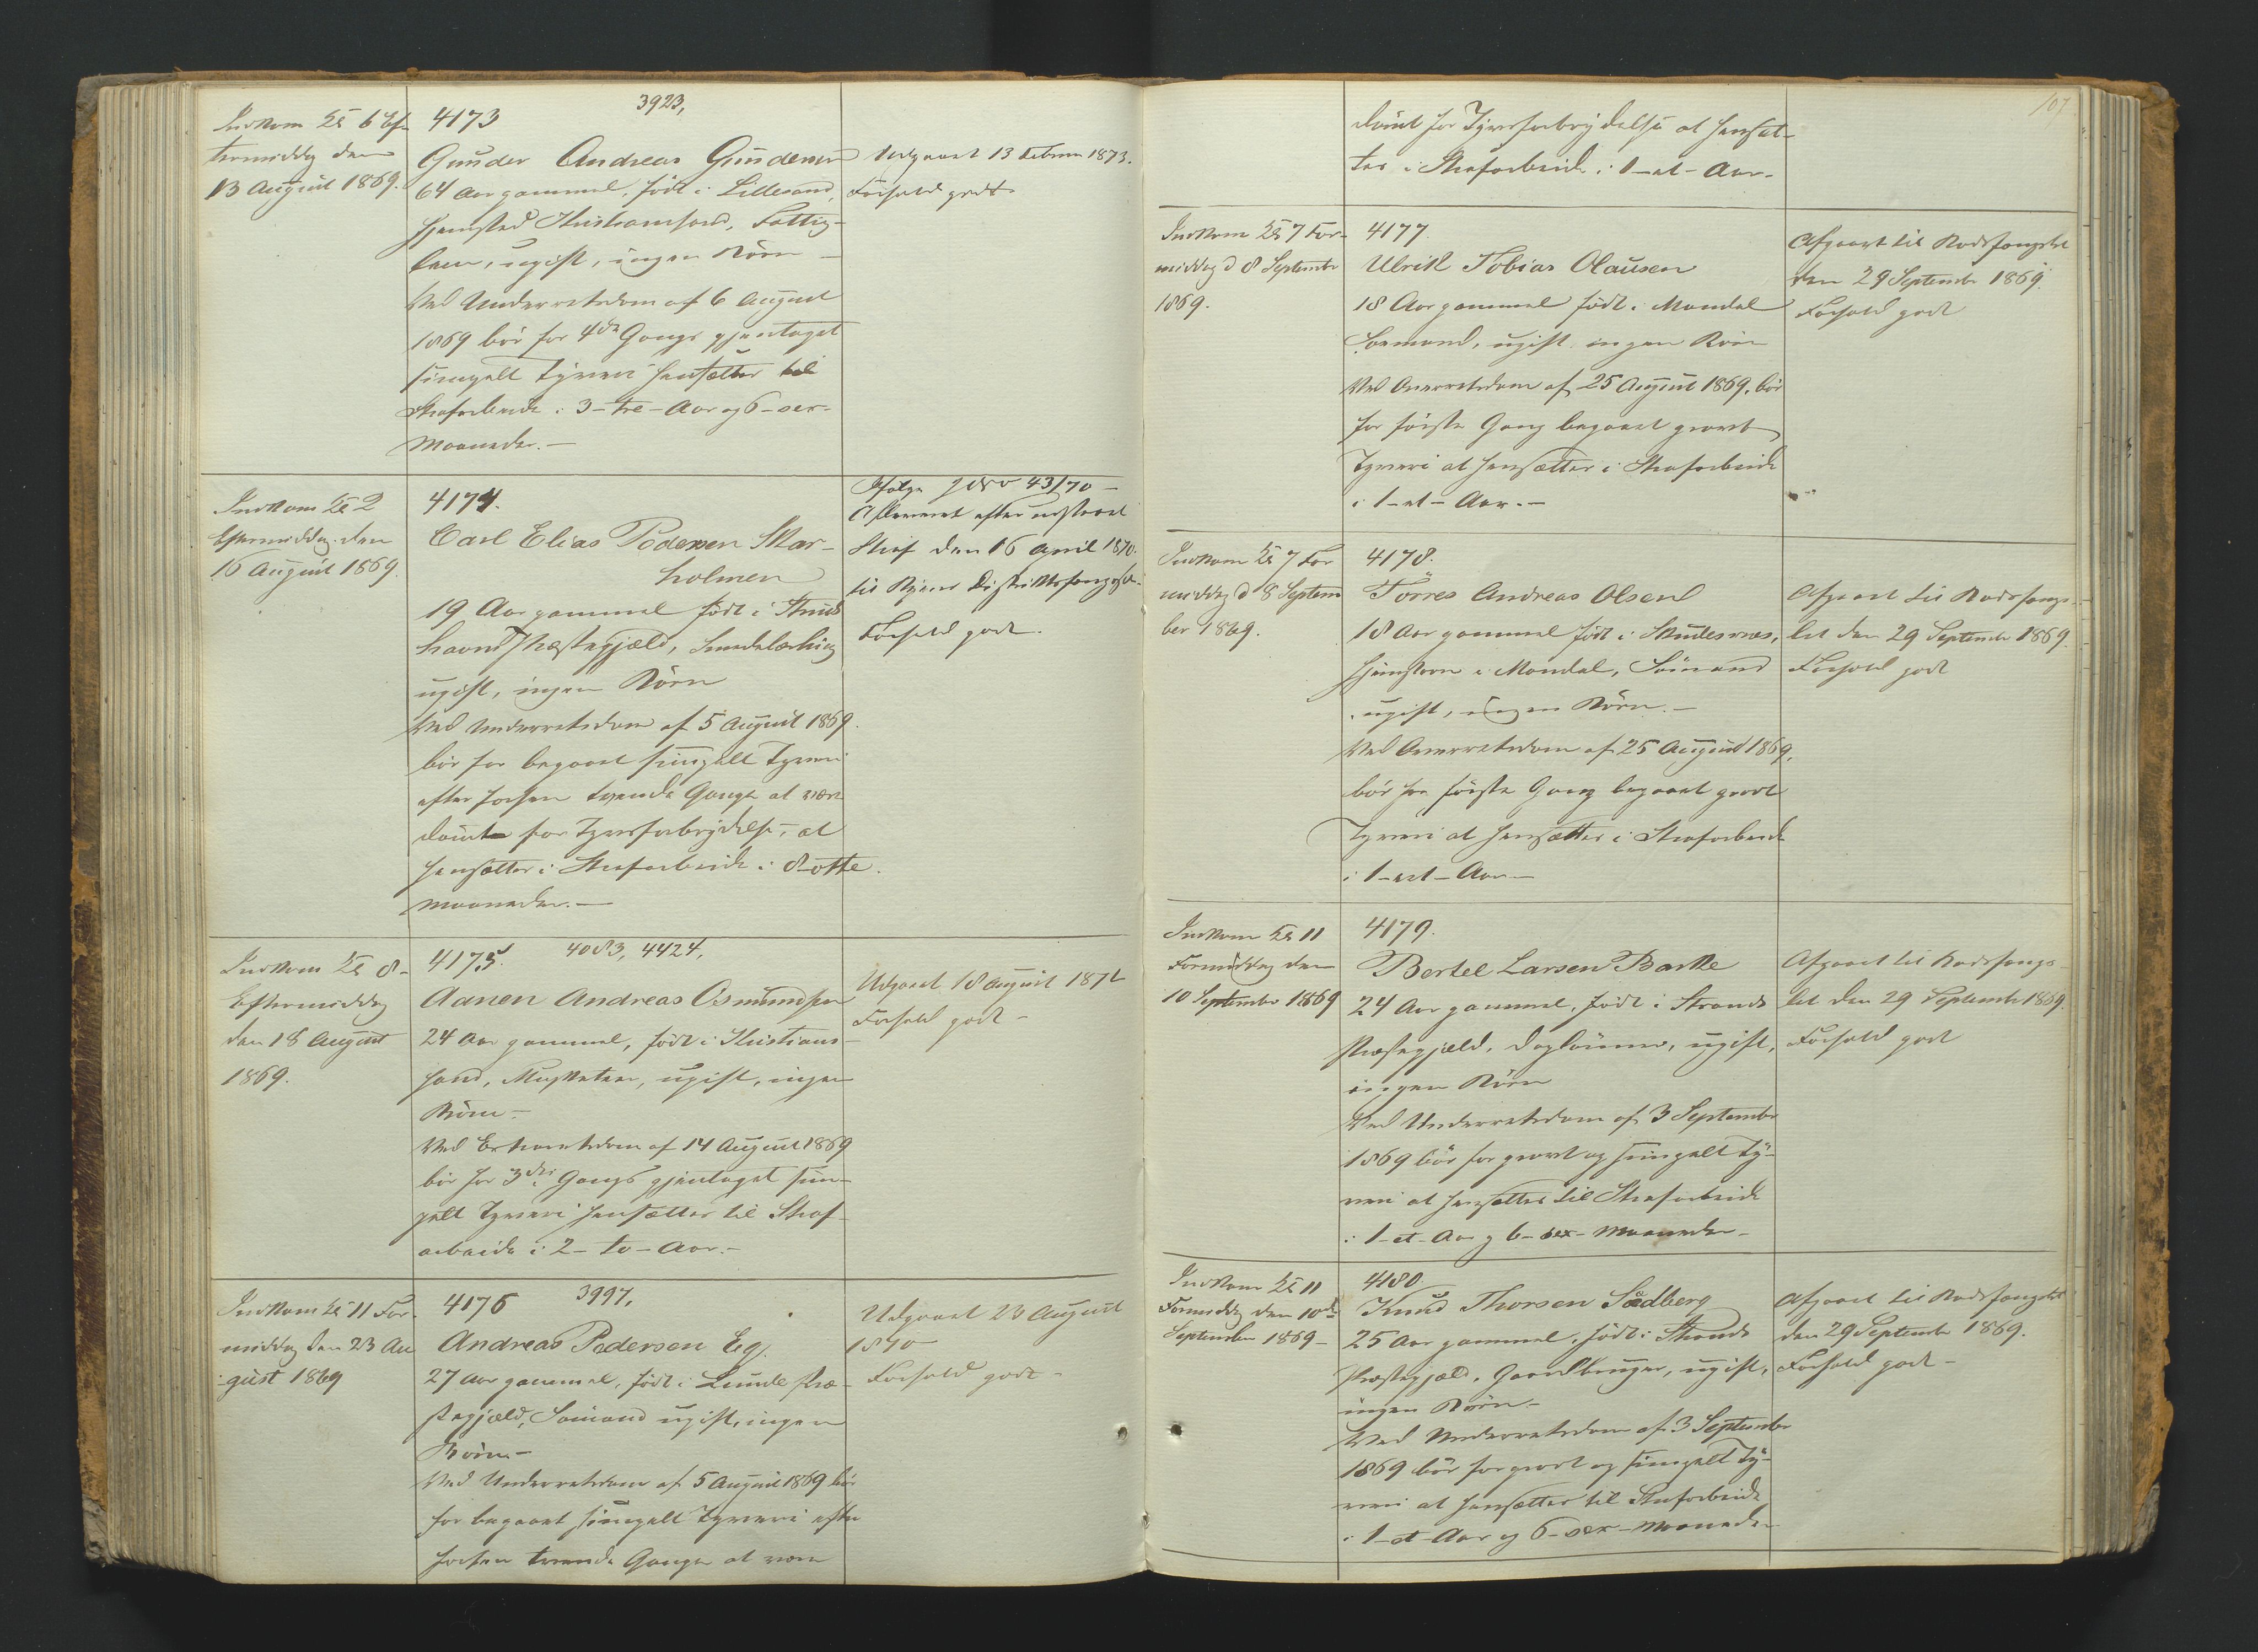 Indkom Kl 6 Ef-
termiddag den
13 August 1869.
4173
3923,
Gunder Andreas Gundersen
64 Aar gammel, født i Lillesand,
Hjemsted Kristiansand, Fattig-
lem, ugift, ingen Börn
Ved Underretsdom af 6 August
1869 bör for 4de Gangs gjentaget
simpelt Tyveri hensættes til
Strafarbeide i 3-tre-Aar og 6-sex-
Maaneder.-
Udgaaet 13 Februar 1873.
Forhold godt
Indkom Kl 2
Eftermiddag den
16 August 1869.
4174.
Carl Elias Pedersen Skar-
holmen
19 Aar gammel født i
Præstegjæld,
ugift, ingen Börn
Ved Underretsdom af 5 August 1869.
bör for begaaet simpelt Tyveri
efter forhen tvende Gange at være
dömt for Tyvsforbrydelse, at
hensættes i Strafarbeide i 8-otte
Maaneder.-
Ifölge 43/70
Afleveret efter udstaaet
Straf den 16 April 1870.
til Distriktsfængsel.
Forhold godt.
Indkom Kl 8-
Eftermiddag
den 18 August
1869.
4175.
4083, 4424,
Aanen Andreas Osmundsen
24 Aar gammel, født i Kristian-
sand, Musketeer, ugift, ingen
Börn-
Ved Extraretsdom af 14 August 1869
bör for 3die Gangs gjentaget sim-
pelt Tyveri hensættes til Straf-
arbeide i 2-to-Aar.-
Udgaaet 18 August 1871
Forhold godt-
Indkom Kl 11 For-
middag den 23 Au
gust 1869
4176
3997,
Andreas Pedersen Eg.
27 Aar gammel, født i Lunde Præ-
stegjæld, Sömand ugift, ingen
Börn-
Ved Underretsdom af 5 August 1869 bör
for begaaet simpelt Tyveri efter
forhen tvende Gange at være
Udgaaet 23 August
1870
Forhold godt-
107
dömt for Tyvsforbrydelse at hensæt-
tes i Strafarbeide i 1-et-Aar.
Indkom Kl 7 For-
middag d 8 September
1869.
4177.
Ulrik Tobias Olausen
18 Aar gammel født i Mandal
Sömand, ugift ingen Börn
Ved Overretsdom af 25 August 1869, bör
for förste Gang begaaet grovt
Tyveri at hensættes i Strafarbeide
i 1-et-Aar.-
Afgaaet til Bodsfængslet
den 29 September 1869.
Forhold godt
Indkom Kl 7 For
middag d 8 Septem
ber 1869.
4178.
Törres Andreas Olsen
18 Aar gammel født i Skudesnæs,
i Mandal, Sömand
ugift, ingen Börn.-
Ved Overretsdom af 25 August 1869,
bör for förste Gang begaaet grovt
Tyveri at hensættes i Strafarbeide
i 1-et-Aar-
Afgaaet til Bodsfængs-
let den 29 September 1869.
Forhold godt
Indkom Kl 11
Formiddag den
10 September 1869
4179.
Bertel Larsen Barke
24 Aar gammel, født i Strands
Præstegjæld, Daglönner, ugift,
ingen Börn
Ved Underretsdom af 3 September
1869 bör for grovt og simpelt Ty-
veri at hensættes til Strafarbeide
i 1-et-Aar og 6-sex-Maaneder-
Afgaaet til Bodsfængs-
let den 29 September 1869.
Forhold godt
Indkom Kl 11
Formiddag den 10de
September 1869-
4180.
Knud Thorsen Sødberg
25 Aar gammel, født i Strands
Præstegjæld, Gaardbruger, ugift,
ingen Börn-
Ved Underretsdom af 3 September
1869 bör for grovt og simpelt Ty-
veri at hensættes til Strafarbeide
i 1-et-Aar og 6-sex-Maaneder
Afgaaet til Bodsfængslet
den 29 September 1869.
Forhold godt-